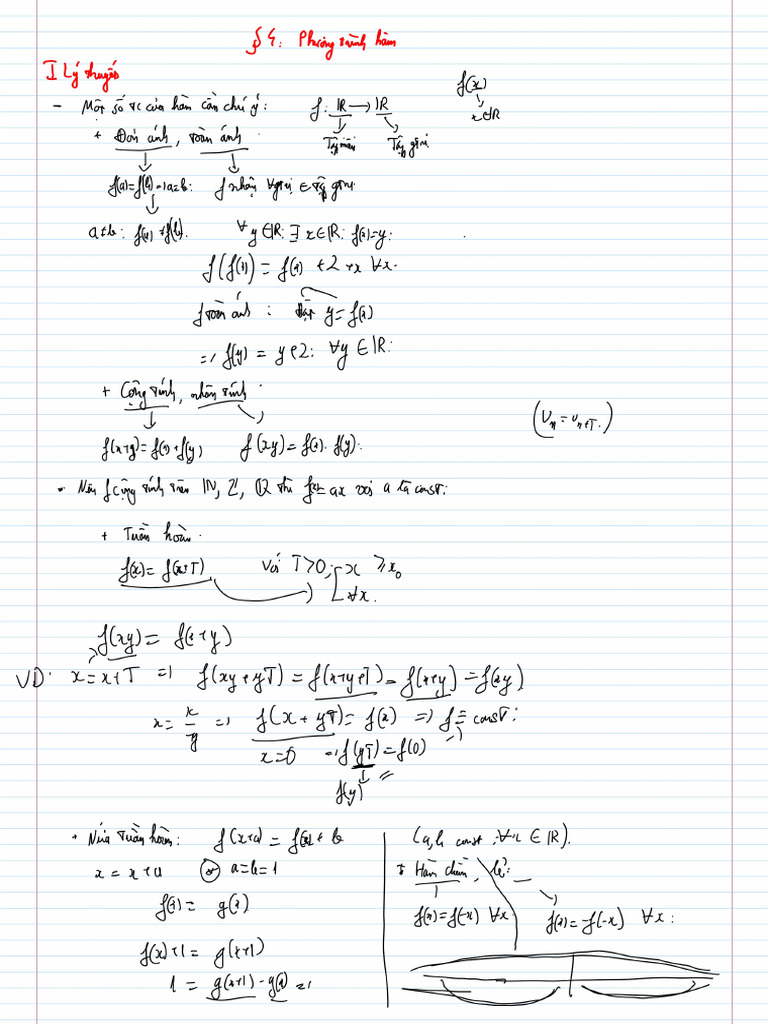 § 4: Phương trình hàm
I Lý thuyết
- Một số tc của hàm cần chú ý: f: IR → IR
f(x)
x ∈ IR
+ Đơn ánh, toàn ánh.
Tập nguồn Tập giá trị
f(a)=f(b) => a=b: f nhận ∀ giá trị ∈ tập giá trị
a≠b: f(a)≠f(b). ∀ y ∈ IR: ∃ x ∈ IR: f(x)=y.
f(f(x)) = f(x) + 2 + x ∀x.
f toàn ánh: Đặt y = f(x)
=> f(y) = y + 2: ∀y ∈ IR:
+ Cộng tính, nhân tính.
f(x+y)=f(x)+f(y) f(xy)=f(x).f(y).
(Un = Un+T.)
• Nếu f cộng tính trên IN, Z, Q thì f(x)=ax với a là const:
+ Tuần hoàn.
f(x)= f(x+T) với T>0; [ x ≥ x0
∀x.
f(xy) = f(x+y)
VD: x = x+T => f(xy+yT) = f(x+y+T) = f(x+y) = f(xy)
x = x/y => f(x + yT) = f(x) => f = const:
x = 0 => f(yT) = f(0)
f(y)
+ Nửa tuần hoàn: f(x+a) = f(x) + b (a,b const; ∀x ∈ IR).
x = x+a a=b=1
f(x) = g(x)
f(x)+1 = g(x+1)
1 = g(x+1) - g(x) =>
+ Hàm chẵn, lẻ:
f(x)=f(-x) ∀x f(x)=-f(-x) ∀x: